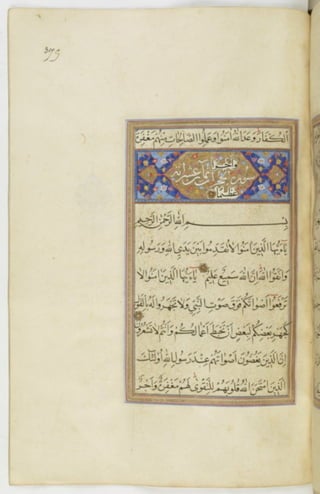 الكفار وعد الله الذين امنوا وعملوا الصالحات منهم مغفرة
واجرا
سورة الحجرات آية
عظيما
بسم الله الرحمن الرحيم
يا ايها الذين امنوا لا تقدموا بين يدي الله ورسوله
واتقوا الله ان الله سميع عليم يا ايها الذين امنوا لا
ترفعوا اصواتكم فوق صوت النبي ولا تجهروا له بالقول
كجهر بعضكم لبعض ان تحبط اعمالكم وانتم لا تشعرون
ان الذين يغضون اصواتهم عند رسول الله اولئك
الذين امتحن الله قلوبهم للتقوى لهم مغفرة واجر